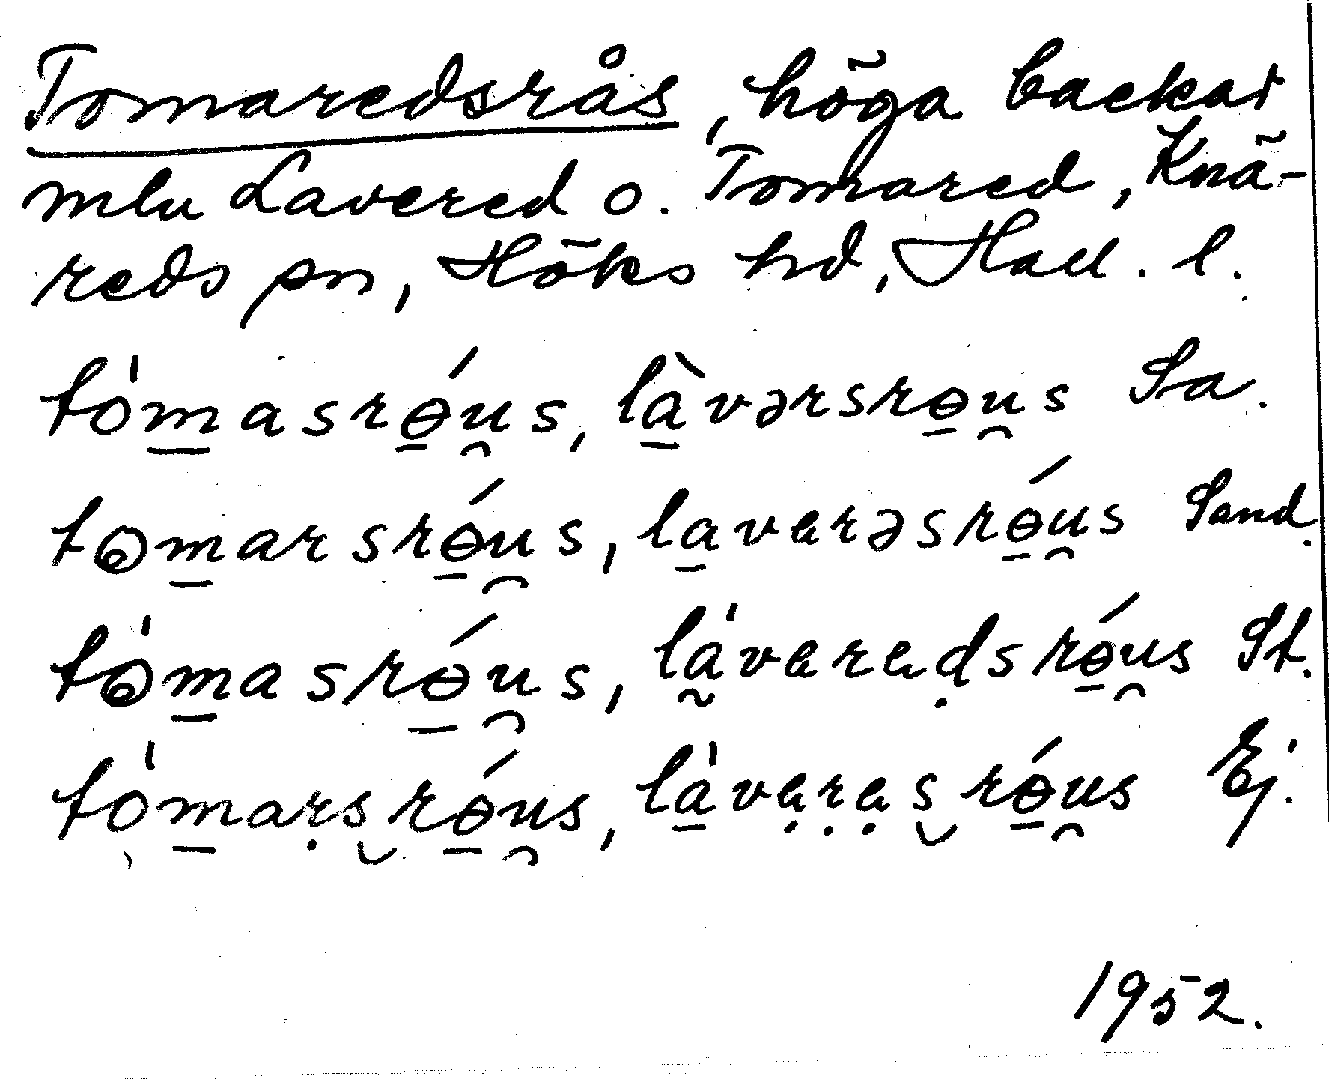 Tomaredsrås, höga backar
mlu Lavered o. Tomared, Knä-
reds sn, Höks hd, Hall. l.
tómasrө́u̯s, là̱vərsrө̱u̯s Sa.
tɷm̱arsrө̱́u̯s, la̱verəsrө̱́u̯s Sand.
tɷ́m̱asrө̱́u̯s, lá̰veraḍsrө̱́u̯s St.
tóm̱aṛs̮rө̱́u̯s, lá̱vẹṛẹs̮rө̱́u̯s Ej.
1952.